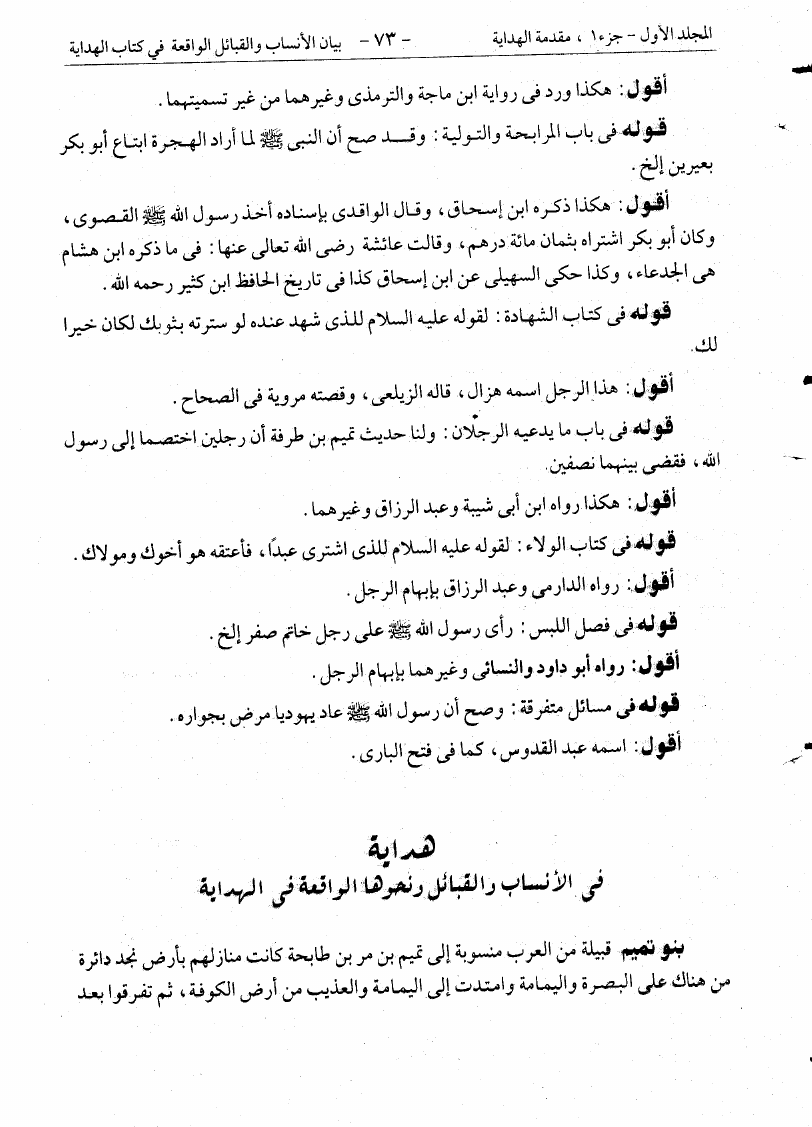 المجلد الأول - جزء ١ ، مقدمة الهداية - ٧٣ - بيان الأنساب والقبائل الواقعة في كتاب الهداية
أقول: هكذا ورد فى رواية ابن ماجة والترمذى وغيرهما من غير تسميتهما.
قوله فى باب المرابحة والتولية: وقد صح أن النبى ﷺ لما أراد الهجرة ابتاع أبو بكر
بعيرين إلخ.
أقول: هكذا ذكره ابن إسحاق، وقال الواقدى بإسناده أخذ رسول الله ﷺ القصوى،
وكان أبو بكر اشتراه بثمان مائة درهم، وقالت عائشة رضى الله تعالى عنها: فى ما ذكره ابن هشام
هى الجدعاء، وكذا حكى السهيلى عن ابن إسحاق كذا فى تاريخ الحافظ ابن كثير رحمه الله.
قوله فى كتاب الشهادة: لقوله عليه السلام للذى شهد عنده لو سترته بثوبك لكان خيرا
لك.
أقول: هذا الرجل اسمه هزال، قاله الزيلعى، وقصته مروية فى الصحاح.
قوله فى باب ما يدعيه الرجلان: ولنا حديث تميم بن طرفة أن رجلين اختصما إلى رسول
الله، فقضى بينهما نصفين.
أقول: هكذا رواه ابن أبى شيبة وعبد الرزاق وغيرهما.
قوله فى كتاب الولاء: لقوله عليه السلام للذى اشترى عبدًا، فأعتقه هو أخوك ومولاك.
أقول: رواه الدارمى وعبد الرزاق بإبهام الرجل.
قوله فى فصل اللبس: رأى رسول الله ﷺ على رجل خاتم صفر إلخ.
أقول: رواه أبو داود والنسائى وغيرهما بإبهام الرجل.
قوله فى مسائل متفرقة: وصح أن رسول الله ﷺ عاد يهوديا مرض بجواره.
أقول: اسمه عبد القدوس، كما فى فتح البارى.
هداية
فى الأنساب والقبائل ونحوها الواقعة فى الهداية
بنو تميم قبيلة من العرب منسوبة إلى تميم بن مر بن طابحة كانت منازلهم بأرض نجد دائرة
من هناك على البصرة واليمامة وامتدت إلى اليمامة والعذيب من أرض الكوفة، ثم تفرقوا بعد